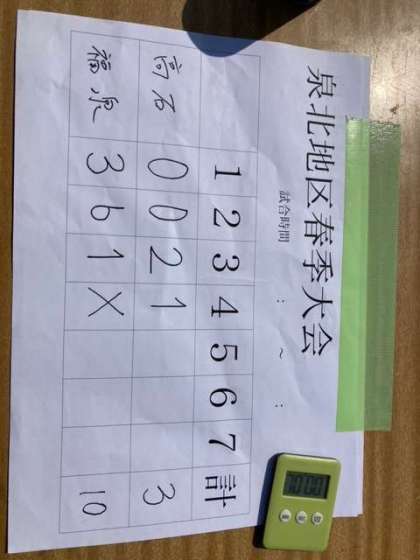 泉北地区春季大会
試合時間 : ~ :
1 2 3 4 5 6 7 計
高石 0 0 2 1 3
福泉 3 6 1 X 10